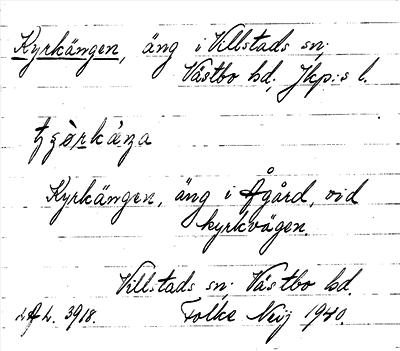 Kyrkängen, äng i Villstads sn;
Västbo hd, Jkp:s l.
Kyrkängen, äng i Ågård, vid
kyrkvägen.
Villstads sn; Västbo hd.
3918. Folke Neij 1940.